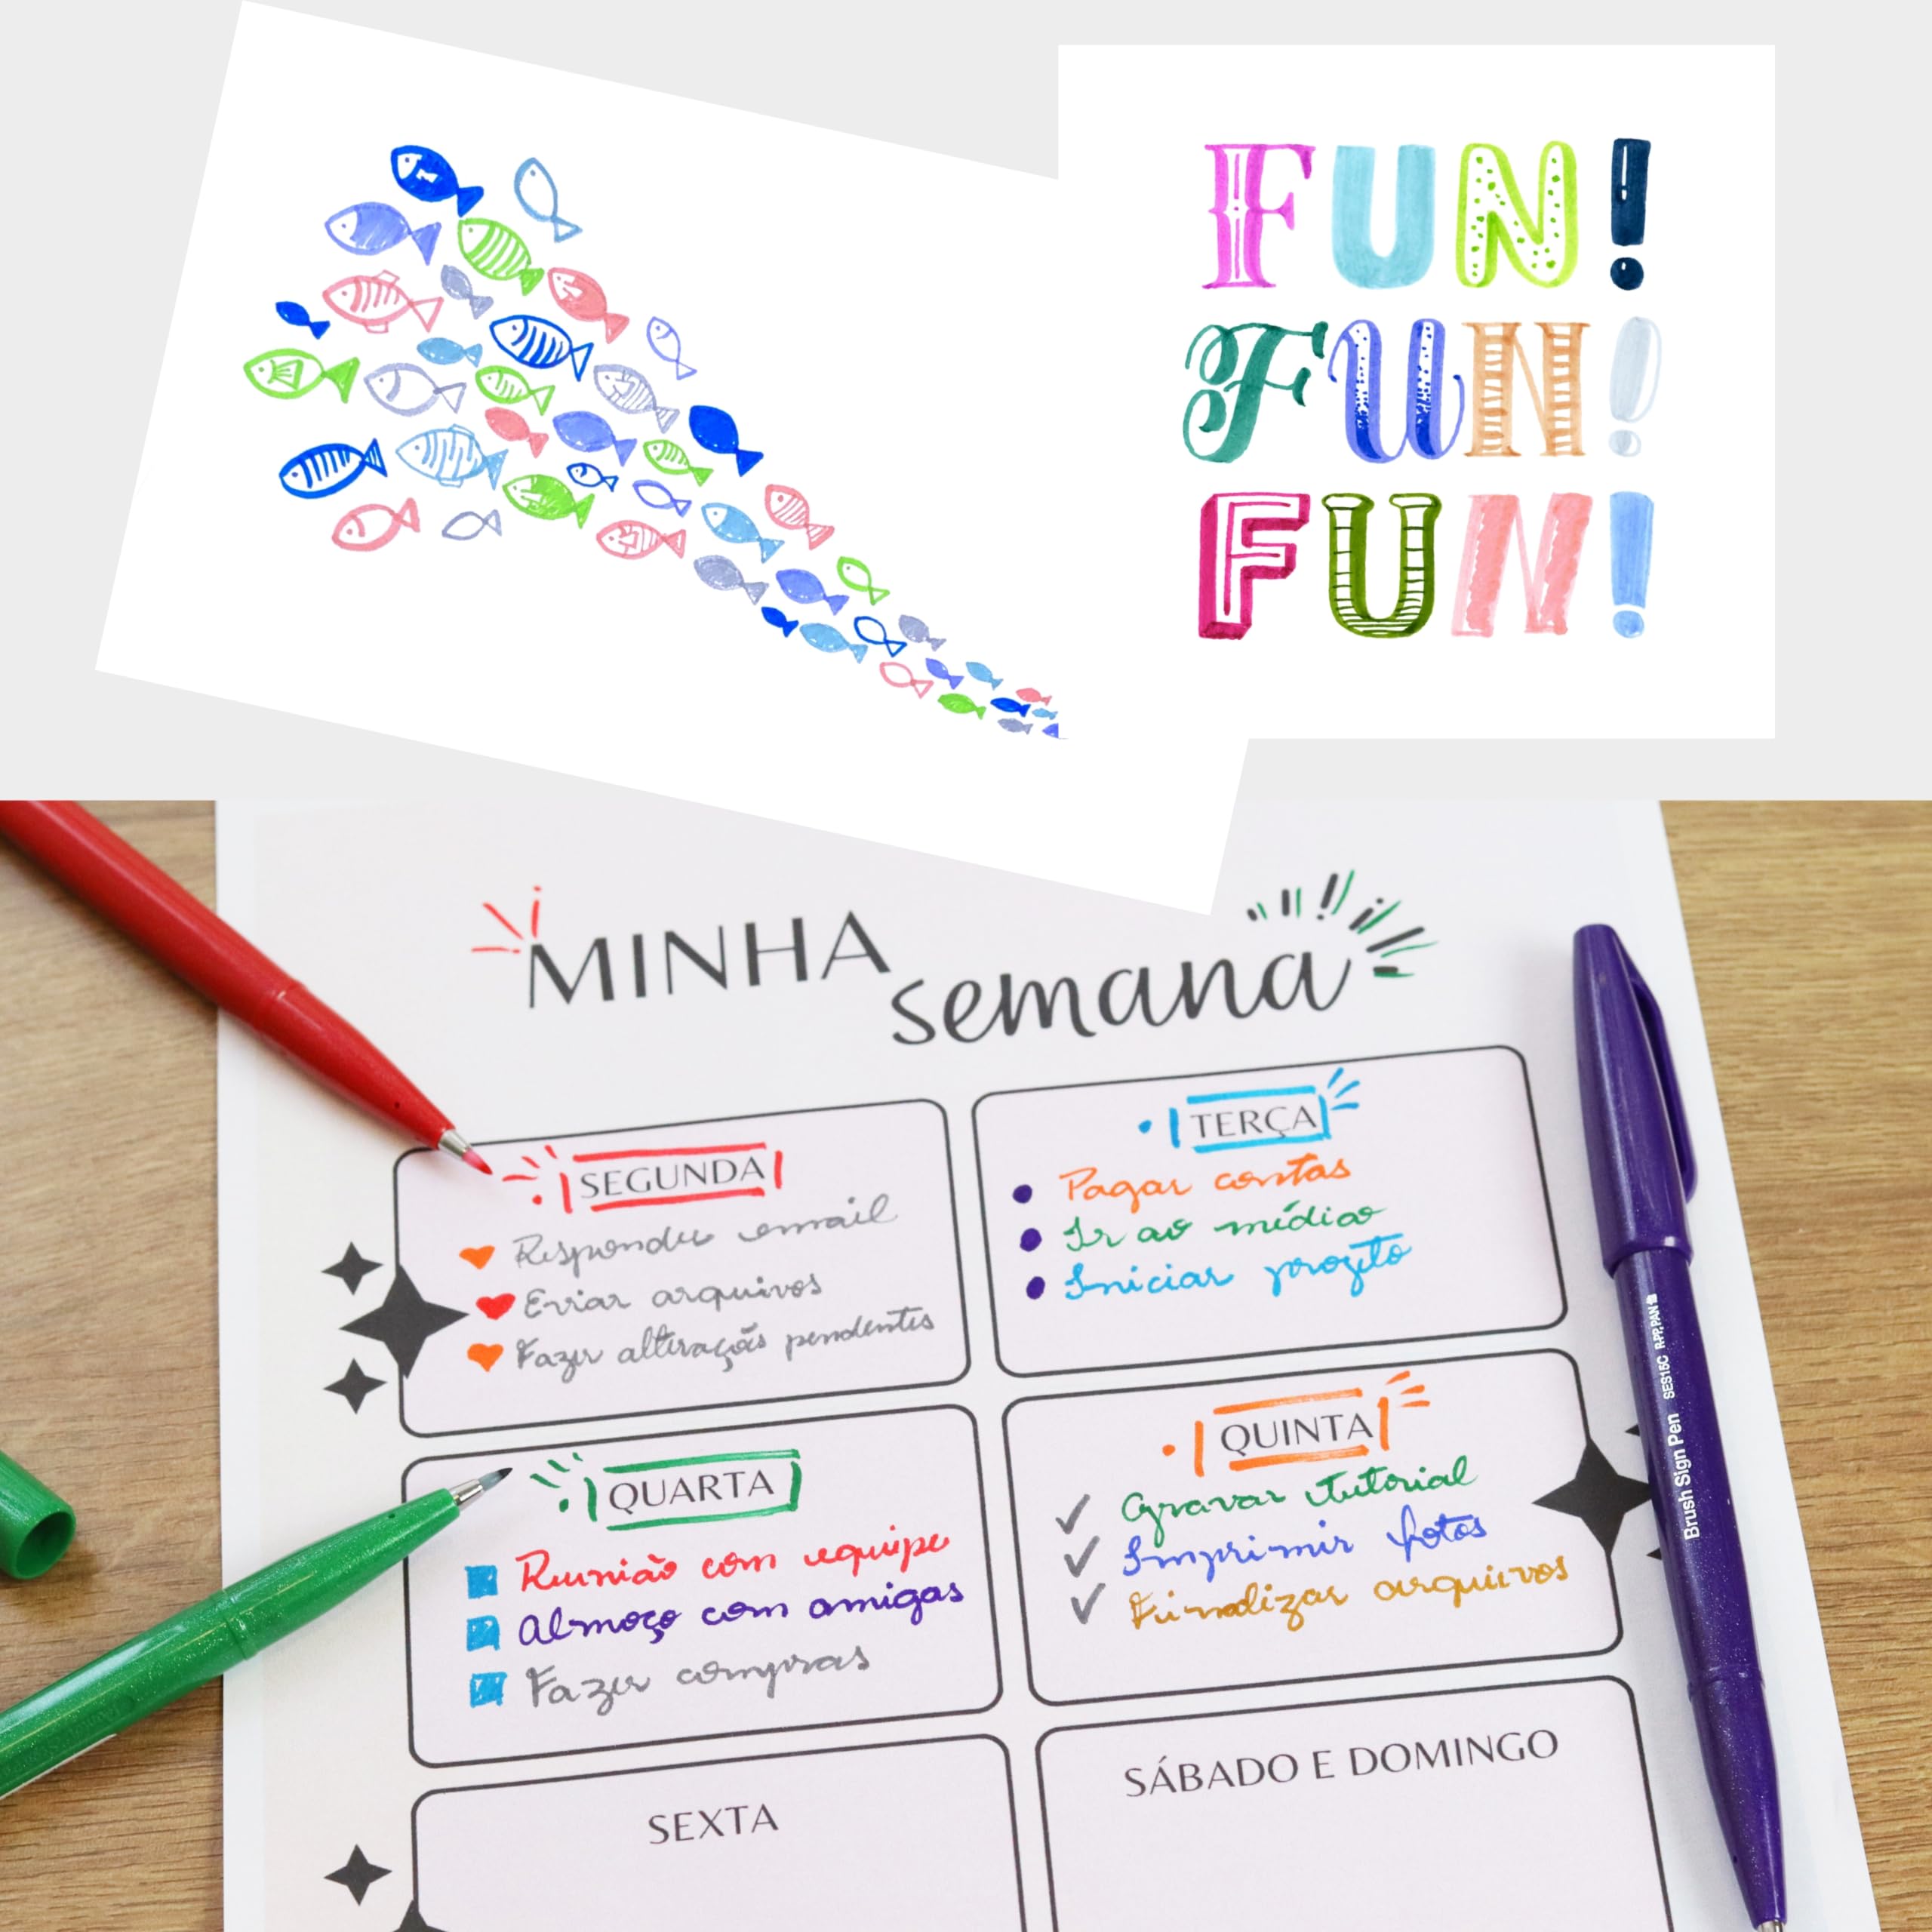 FUN!
FUN!
FUN!
MINHA
semana
SEGUNDA
Responder email
Enviar arquivos
Fazer alterações pendentes
TERÇA
Pagar contas
Ir ao médico
Iniciar projeto
QUARTA
Reunião com equipe
Almoço com amigas
Fazer compras
QUINTA
Gravar tutorial
Imprimir fotos
Finalizar arquivos
SEXTA
SÁBADO E DOMINGO
Brush Sign Pen SES15C